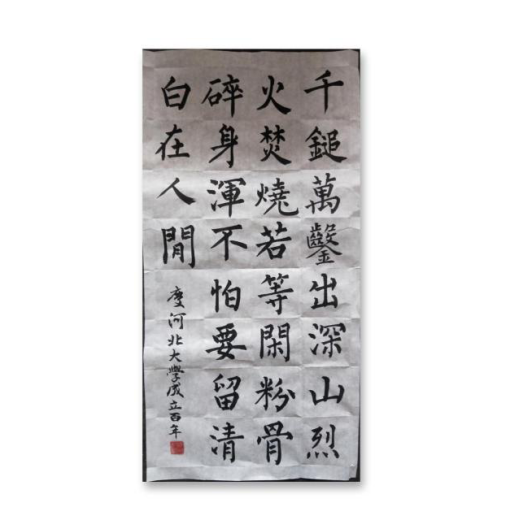 千鎚萬鑿出深山烈
火焚燒若等閑粉骨
碎身渾不怕要留清
白在人間
慶河北大學成立百年